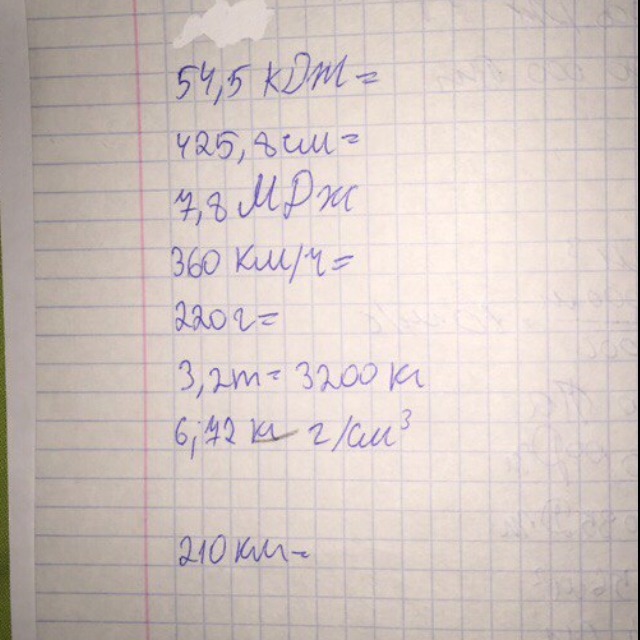 54,5 кДж=
425,8 см=
7,8 МДж
360 км/ч=
220г=
3,2т=3200 кг
6,72 кг г/см³
210 км=